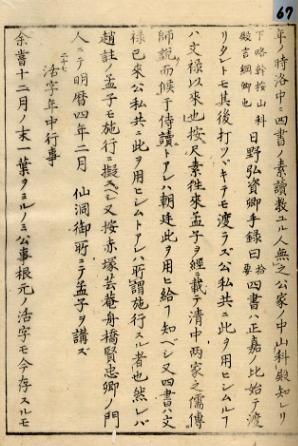 67
年ノ時洛中ニ四書ノ素讀教ユル人無之公家ノ中山科殿知レリ
下略幹按山科殿言綱卿也 日野弘資卿手録曰 拾要 四書ハ正嘉ノ比始テ渡
リタントモ其後打ツヾキテモ渡ラズ公私共ニ此ヲ用ヒシムルフ
ハ文禄以來也按尺素往來孟子ヲ經ニ載テ清中兩家之儒傳
師説而候于侍讀トアレハ朝廷此ヲ用ヒ給フ知ベシ又四書ハ文
禄已來公私共ニ此ヲ用ヒシムトアレハ所謂施行スル者也然レバ
趙註ノ孟子モ施行ニ擬スベシ又按赤塚芸庵舟橋賢忠卿ノ門
人ニテ明暦四年二月 仙洞御所ニテ孟子ヲ講ズ
二十七 活字年中行事
余嘗十二月ノ末一葉ヲミルノミ公事根元ノ活字モ今存スルモ